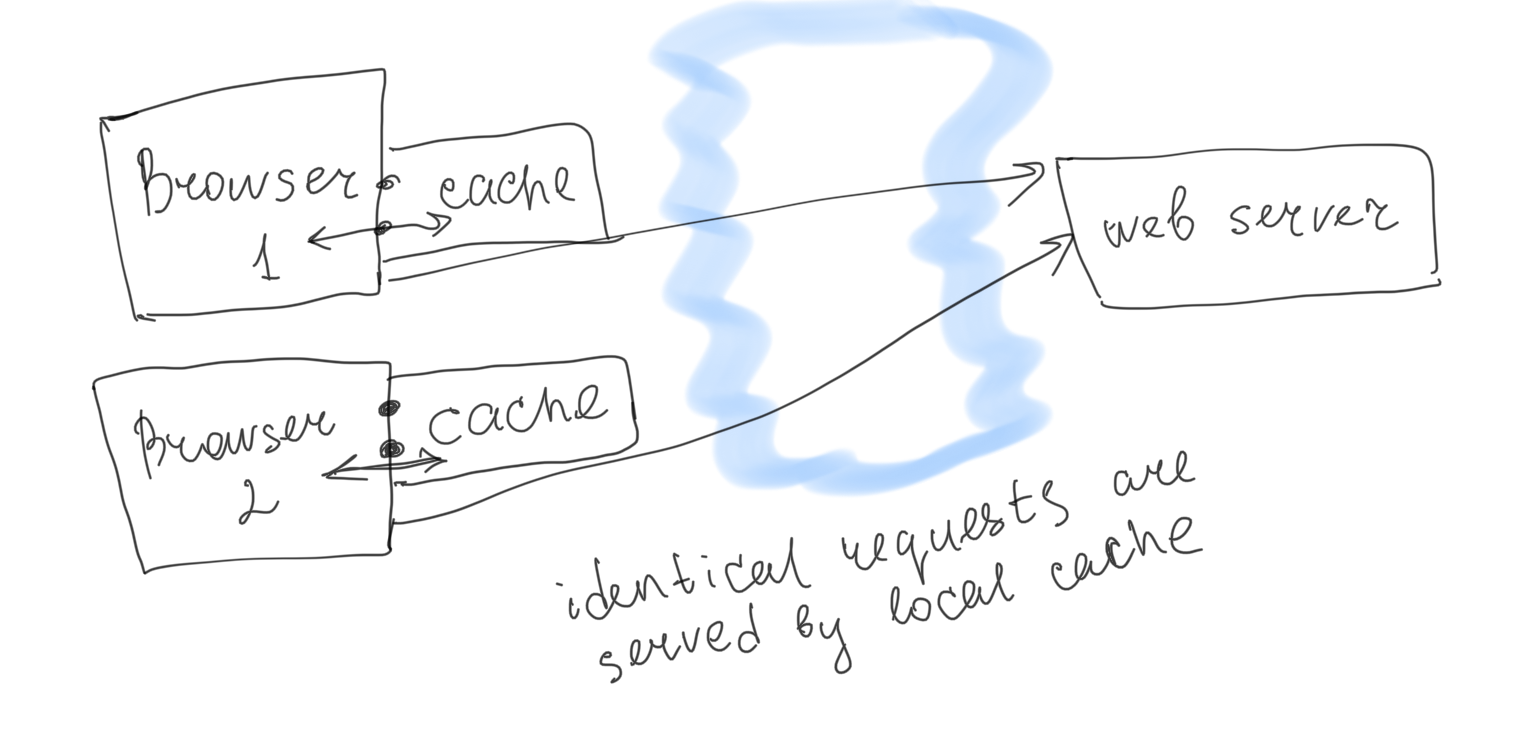 Browser
1
cache
web server
Browser
2
cache
identical requests are
served by local cache